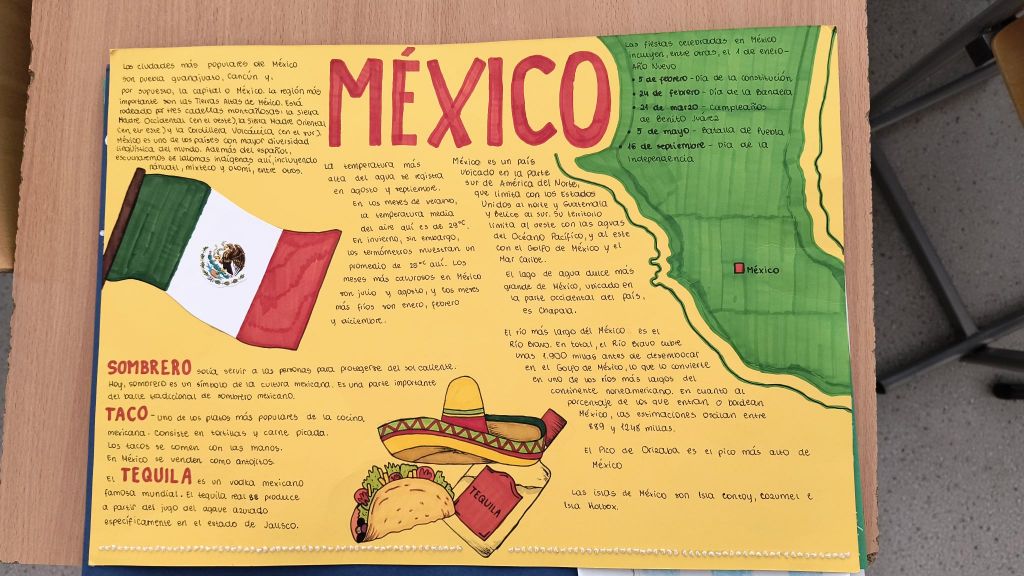 MÉXICO
Las ciudades más populares de México
son puebla guanajuato, cancún y,
por supuesto, la capital o México. La región más
importante son las Tierras Altas de México. Está
rodeado por tres cadenas montañosas: la sierra
Madre Occidental (en el oeste), la Sierra Madre Oriental
(en el este) y la Cordillera Volcánica (en el sur).
México es uno de los países con mayor diversidad
lingüística del mundo. Además del español,
escucharemos idiomas indígenas aquí, incluyendo
náhuatl, mixteco y otomí, entre otros.
La temperatura más
alta del agua se registra
en agosto y septiembre.
En los meses de verano,
la temperatura media
del aire aquí es de 29°C.
En invierno, sin embargo,
los termómetros muestran un
promedio de 28°C aquí. Los
meses más calurosos en México
son julio y agosto, y los meses
más fríos son enero, febrero
y diciembre.
México es un país
ubicado en la parte
sur de América del Norte,
que limita con los Estados
Unidos al norte y Guatemala
y Belice al sur. Su territorio
limita al oeste con las aguas
del Océano Pacífico, y al este
con el Golfo de México y el
Mar Caribe.
El lago de agua dulce más
grande de México, ubicado en
la parte occidental del país,
es Chapala.
El río más largo del México es el
Río Bravo. En total, el Río Bravo cubre
unas 1.900 millas antes de desembocar
en el Golfo de México, lo que lo convierte
en uno de los ríos más largos del
continente norteamericano. En cuanto al
porcentaje de los que entran o bordean
México, las estimaciones oscilan entre
889 y 1248 millas.
El Pico de Orizaba es el pico más alto de
México
Las islas de México son Isla Contoy, Cozumel e
Isla Holbox.
Las fiestas celebradas en México
incluyen, entre otras, el 1 de enero-
Año Nuevo
• 5 de febrero - Día de la constitución
• 24 de febrero - Día de la Bandera
• 21 de marzo - Cumpleaños
de Benito Juárez
• 5 de mayo - Batalla de Puebla
• 16 de septiembre - Día de la
Independencia
México
SOMBRERO solía servir a las personas para protegerse del sol caliente.
Hoy, sombrero es un símbolo de la cultura mexicana. Es una parte importante
del baile tradicional de sombrero mexicano.
TACO - uno de los platos más populares de la cocina
mexicana. Consiste en tortillas y carne picada.
Los tacos se comen con las manos.
En México se venden como antojitos.
El TEQUILA es un vodka mexicano
famosa mundial. El tequila real se produce
a partir del jugo del agave azurado
específicamente en el estado de Jalisco.
TEQUILA